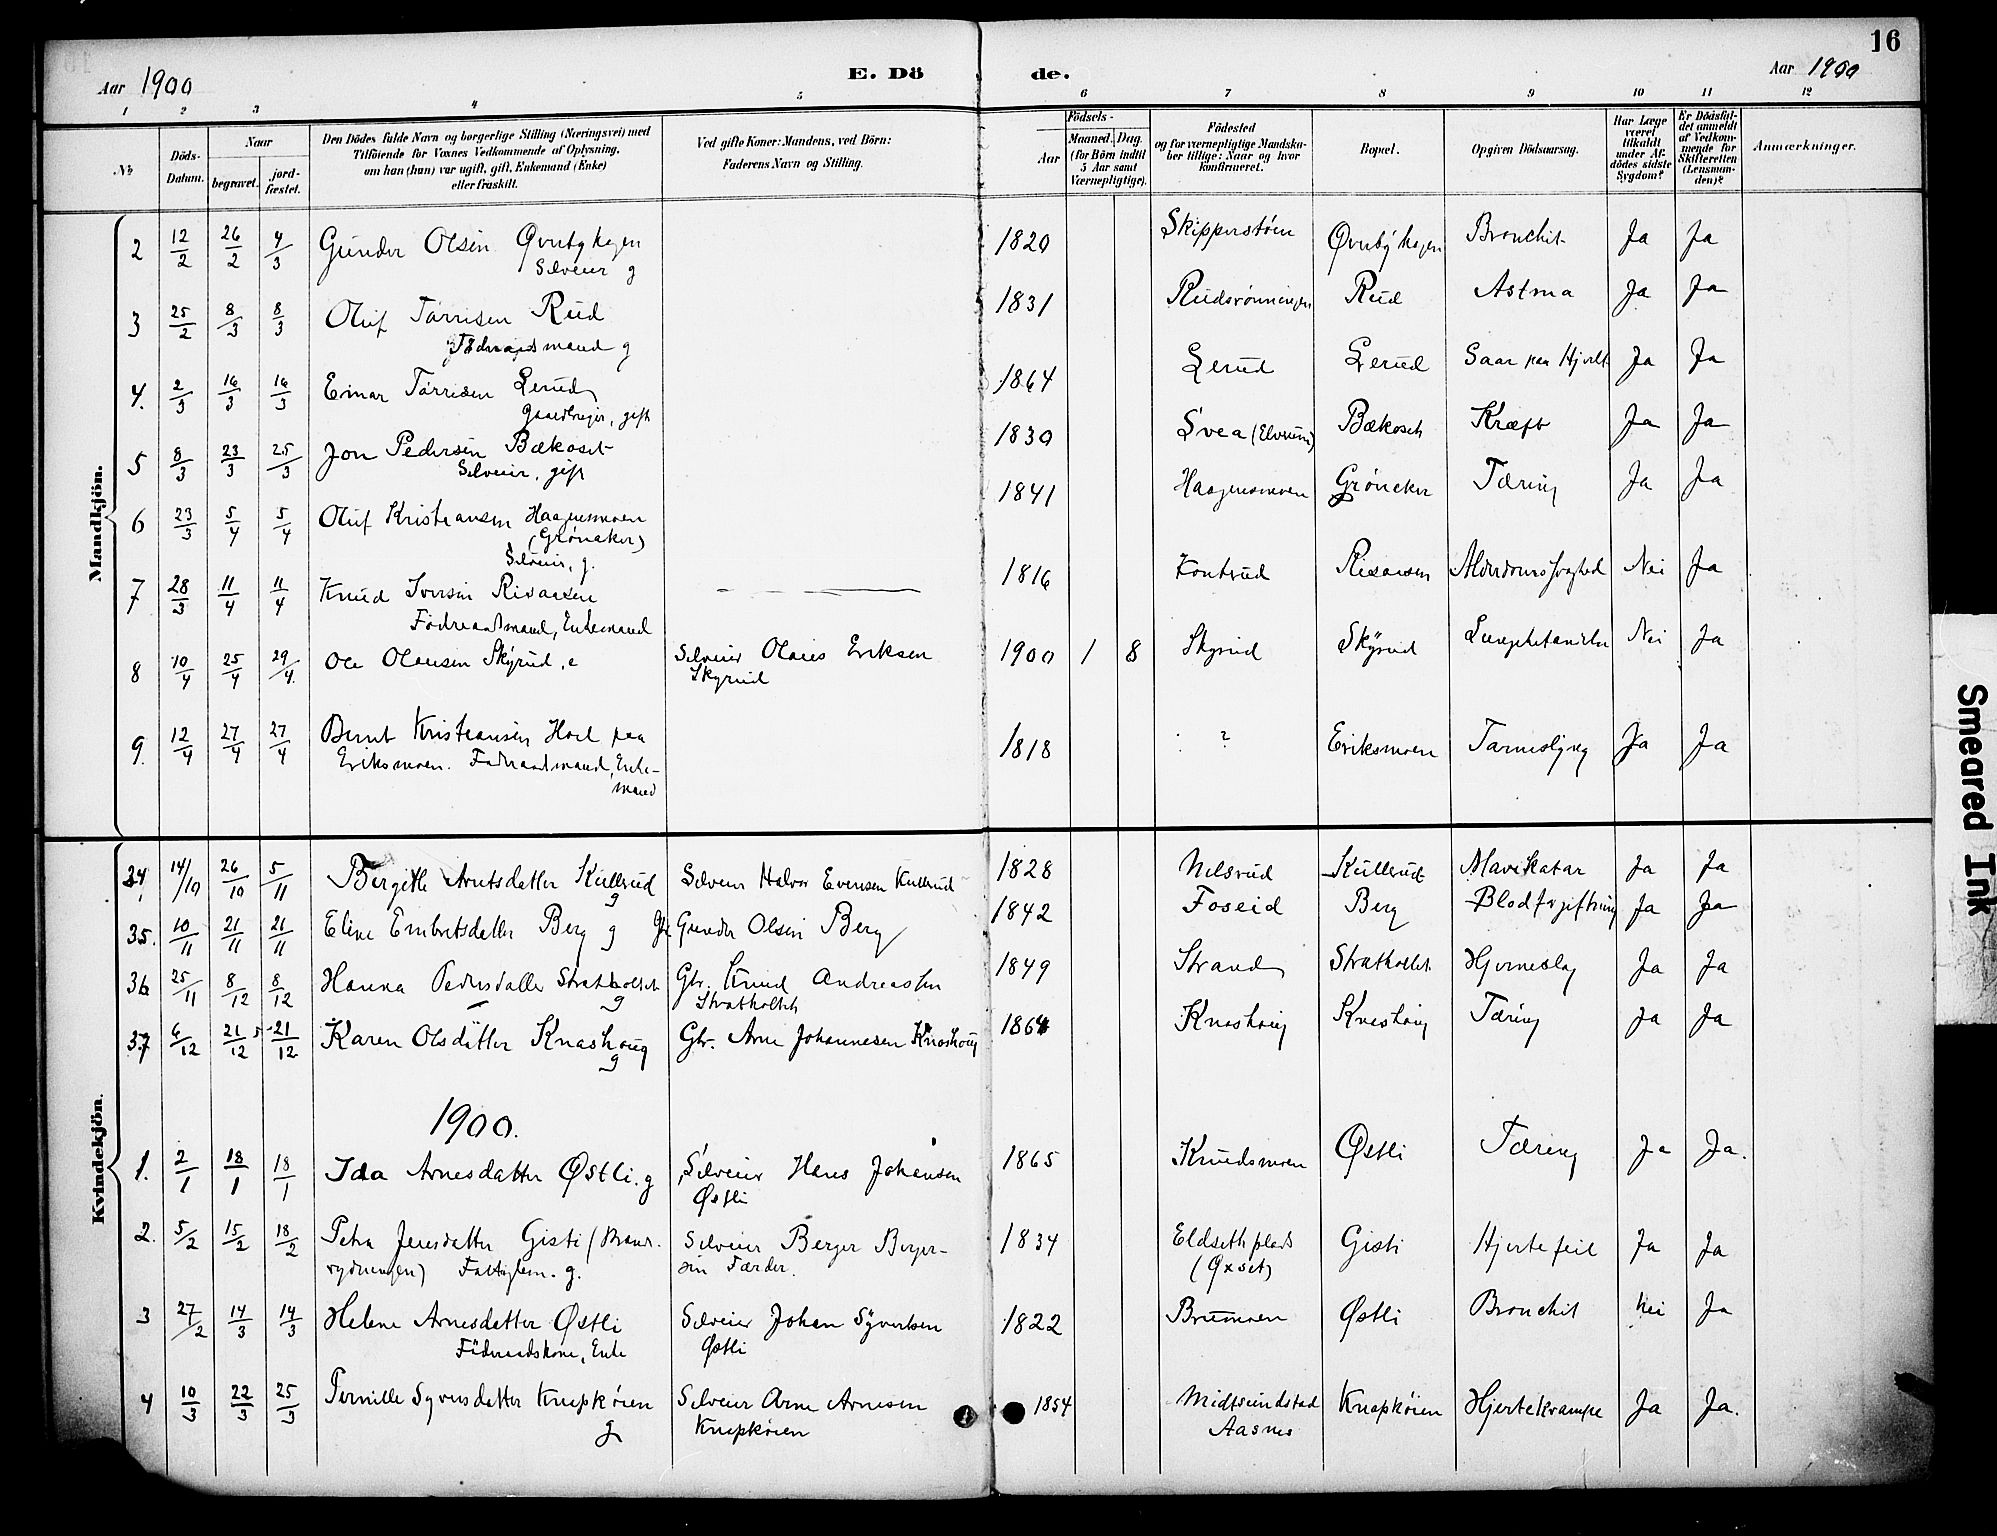 16
Aar 1900 E. Dö de. Aar 1900
1 2 3 4 5 6 7 8 9 10 11 12
No. Döds-Datum. Naar begravet. jord-fæstet. Den Dödes fulde Navn og borgerlige Stilling (Næringsvei) med Tilföiende for Voxnes Vedkommende af Oplysning, om han (hun) var ugift, gift, Enkemand (Enke) eller fraskilt. Ved gifte Koner: Mandens, ved Börn: Faderens Navn og Stilling. Födsels- Aar Maaned. Dag. (for Börn indtil 5 Aar samt Værnepligtige). Födested og for værnepligtige Mandskaber tillige: Naar og hvor konfirmeret. Bopæl. Opgiven Dödsaarsag. Har Læge været tilkaldt under Afdödes sidste Sygdom? Er Dödsfaldet anmeldt af Vedkommende for Skifteretten (Lensmanden)? Anmærkninger.
Mandkjön.
2 12/2 26/2 4/3 Gunder Olsen Øvrebyhagen 1820 Skipperstøen Øvrebyhagen Bronchit Ja Ja
Selveier g
3 25/2 8/3 8/3 Oluf Tørrisen Rud 1831 Rudsrønningen Rud Astma Ja Ja
Föderaadsmand g
4. 2/3 16/3 16/3 Einar Tørrisen Lerud 1864 Lerud Lerud Saar paa Hjertet Ja Ja
Gaardbruger, gift
5 8/3 23/3 25/3 Jon Pedersen Bækoset 1830 Svea (Elverum) Bækoset Kræft Ja Ja
Selveier, gift
6 23/3 5/4 5/4 Oluf Kristiansen Haagensmoen 1841 Haagensmoen Grønaker Tæring Ja Ja
(Grønaker)
Selveier, g.
7 28/3 11/4 11/4 Knud Iversen Risaasen 1816 Kontrud Risaasen Alderdomssvaghed Nei Ja
Föderaadsmand, Enkemand
8 10/4 25/4 29/4. Ole Olausen Skyrud, e Selveier Olaus Eriksen 1900 1 8 Skyrud Skyrud Nei Ja
Skyrud
9. 12/4 27/4 27/4 Bernt Kristiansen Hoel paa 1818 ? Eriksmoen Tarmslyng Ja Ja
Eriksmoen. Föderaadsmand, Enke-
mand
Kvindekjön.
34, 14/10 26/10 5/11 Bergitte Arntsdatter Kullerud g Selveier Halvor Evensen Kullerud 1828 Nilsrud Kullerud Mavekatar Ja Ja
35. 10/11 21/11 21/11 Eline Embretsdatter Berg g Gbr. Gunder Olsen Berg 1842 Foseid Berg Blodforgiftning Ja Ja
36 25/11 8/12 8/12 Hanna Pedersdatter Stratkoltet g Gbr. Knud Andreassen 1849 Strand Stratkoltet Hjerneslag Ja Ja
Stratkoltet
37 6/12 21/12 21/12 Karen Olsdatter Knashoug g Gbr. Arne Johannesen Knashoug 1864 Knashoug Knashoug Tæring Ja Ja
1900.
1. 2/1 18/1 18/1 Ida Arnesdatter Østli. g Selveier Hans Johansen 1865 Knudsmoen Østli Tæring Ja Ja.
Østli
2. 5/2 15/2 18/2 Petra Jensdatter Gisti (Brænd- Selveier Berger Berger- 1834 Eldseth plads Gisti Hjertefeil Ja Ja
rydningen) Fattiglem. g. sen Færder. (Øxset)
3 27/2 14/3 14/3 Helene Arnesdatter Østli Selveier Johan Syvertsen 1822 Brumoen Østli Bronchit Nei Ja
Föderaadskone, Enke Østli
4 10/3 22/3 25/3 Pernille Syversdatter Knapkøien Selveier Arne Arnesen 1854 Midtsundstad Knapkøien Hjertekrampe Ja Ja.
g Knapkøien Aasnes
Smeared Ink